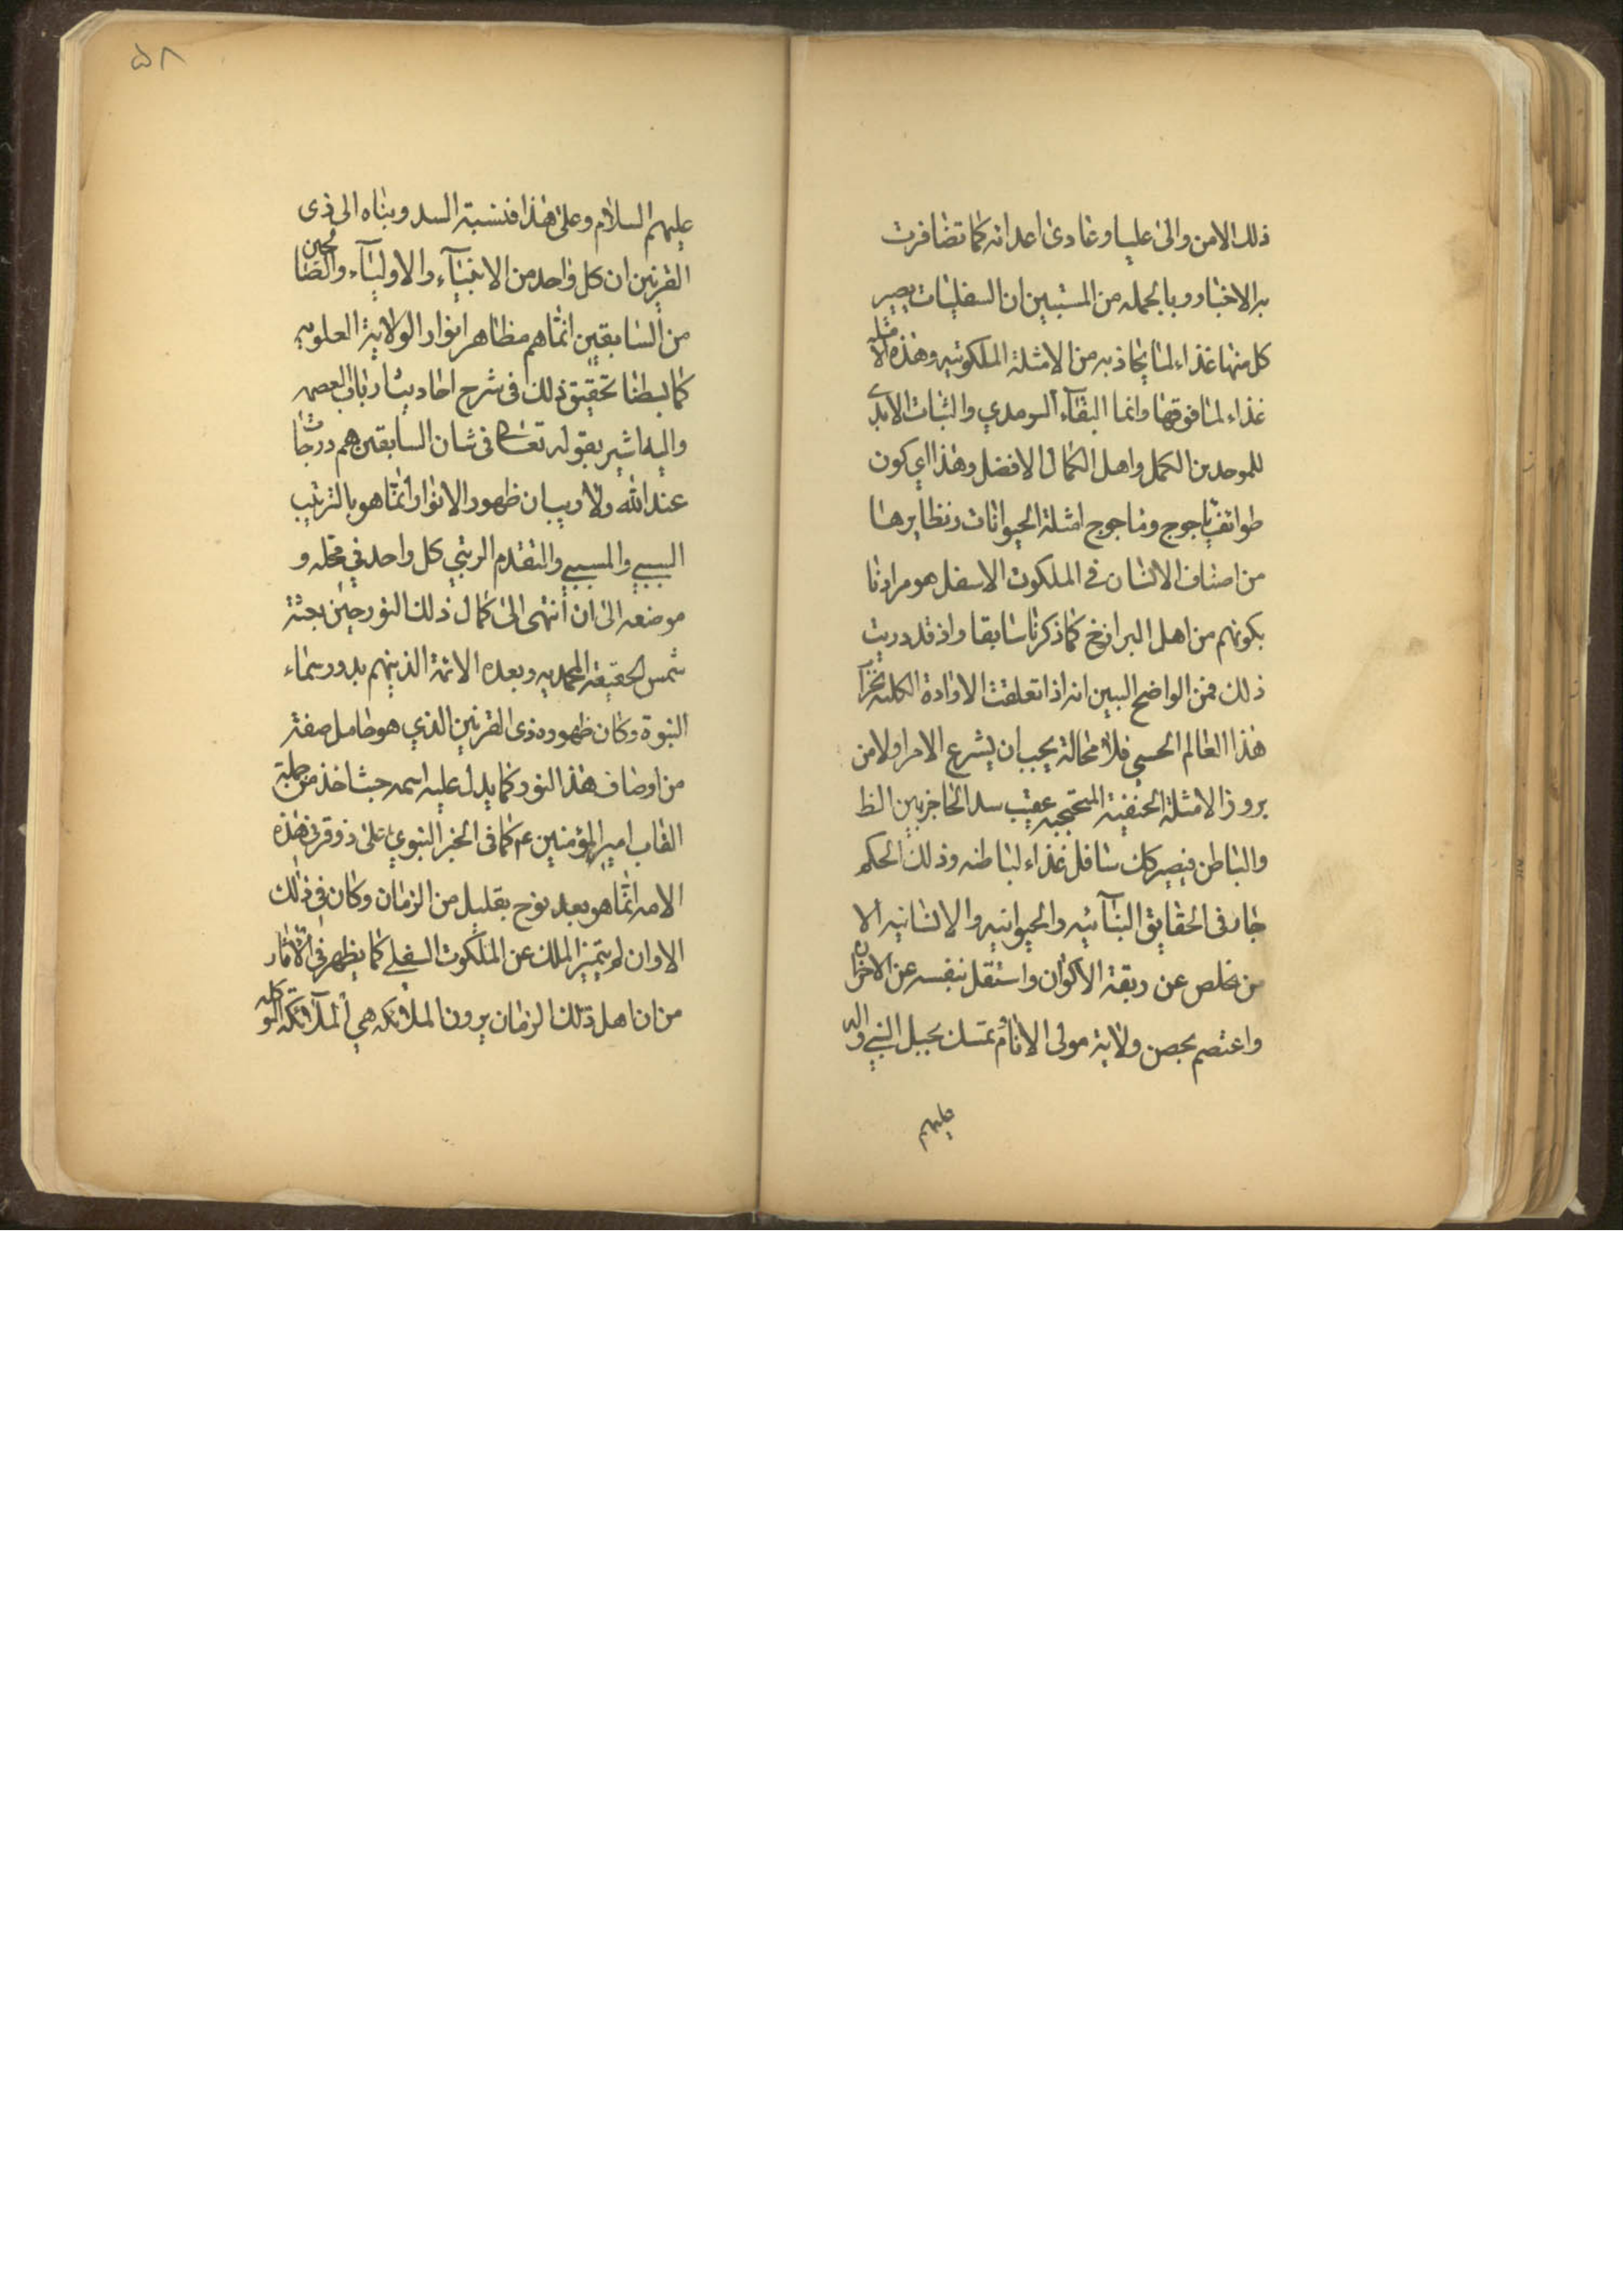 ذلك الامن والى عليا وعادى اعدائه كما تضافرت
به الاخبار وبالجمله من المستبين ان السفليات يصير
كل منها غذاء لما يحاذيه من الامثلة الملكوتيه وهذه الامثله
غذاء لما فوقها وانما البقاء السرمدي والثبات الابدي
للموحدين الكمل واهل الكمال الافضل وهذا اي كون
طوائف ياجوج وماجوج امثلة الحيوانات ونظايرها
من اصناف الانسان في الملكوت الاسفل هو مرادنا
بكونهم من اهل البرازخ كما ذكرنا سابقا واذ قد دريت
ذلك فمن الواضح المبين انه اذا تعلقت الارادة الكليه
هذا العالم الحسي فلا محالة يجب ان يشرع الامر اولا من
بروز الامثلة الخفية عقيب سد الحاجز بين الظ
والباطن فيصير كل سافل غذاء لباطنه وذلك الحكم
جار في الحقايق النباتيه والحيوانيه والانسانيه الا
من تخلص عن ربقة الاكوان واستقل بنفسه عن
واعتصم بحصن ولاية مولى الانام وتمسك بحبل النبي واله
عليهم
۵۸
عليهم السلام وعلى هذا فنسبة السد وبناه الى ذى
القرنين ان كل واحد من الانبياء والاولياء والصالحين
من السابقين انما هم مظاهر انوار الولاية العلويه
كما بسطنا تحقيق ذلك في شرح احاديث ارباب العصمه
واليه اشير بقوله تعالى في شان السابقين هم درجات
عند الله ولا ريب ان ظهور الانوار انما هو بالترتيب
السببي والمسببي والتقدم الرتبي كل واحد في محله و
موضعه الى ان انتهى الى كمال ذلك النور حين بعثة
شمس الحقيقة المحمديه وبعده الائمة الذينهم بدور سماء
النبوة وكان ظهوره ذى القرنين الذي هو حامل صفة
من اوصاف هذا النور كما يدل عليه اسمه حيث اخذ من جملة
القاب امير المؤمنين ع كما في الخبر النبوي علي ذو قرني هذه
الامه انما هو بعد نوح بقليل من الزمان وكان في ذلك
الاوان لم يتميز الملك عن الملكوت السفلي كما يظهر في الاثار
من ان اهل ذلك الزمان يرون الملائكه هي الملائكه الموكله